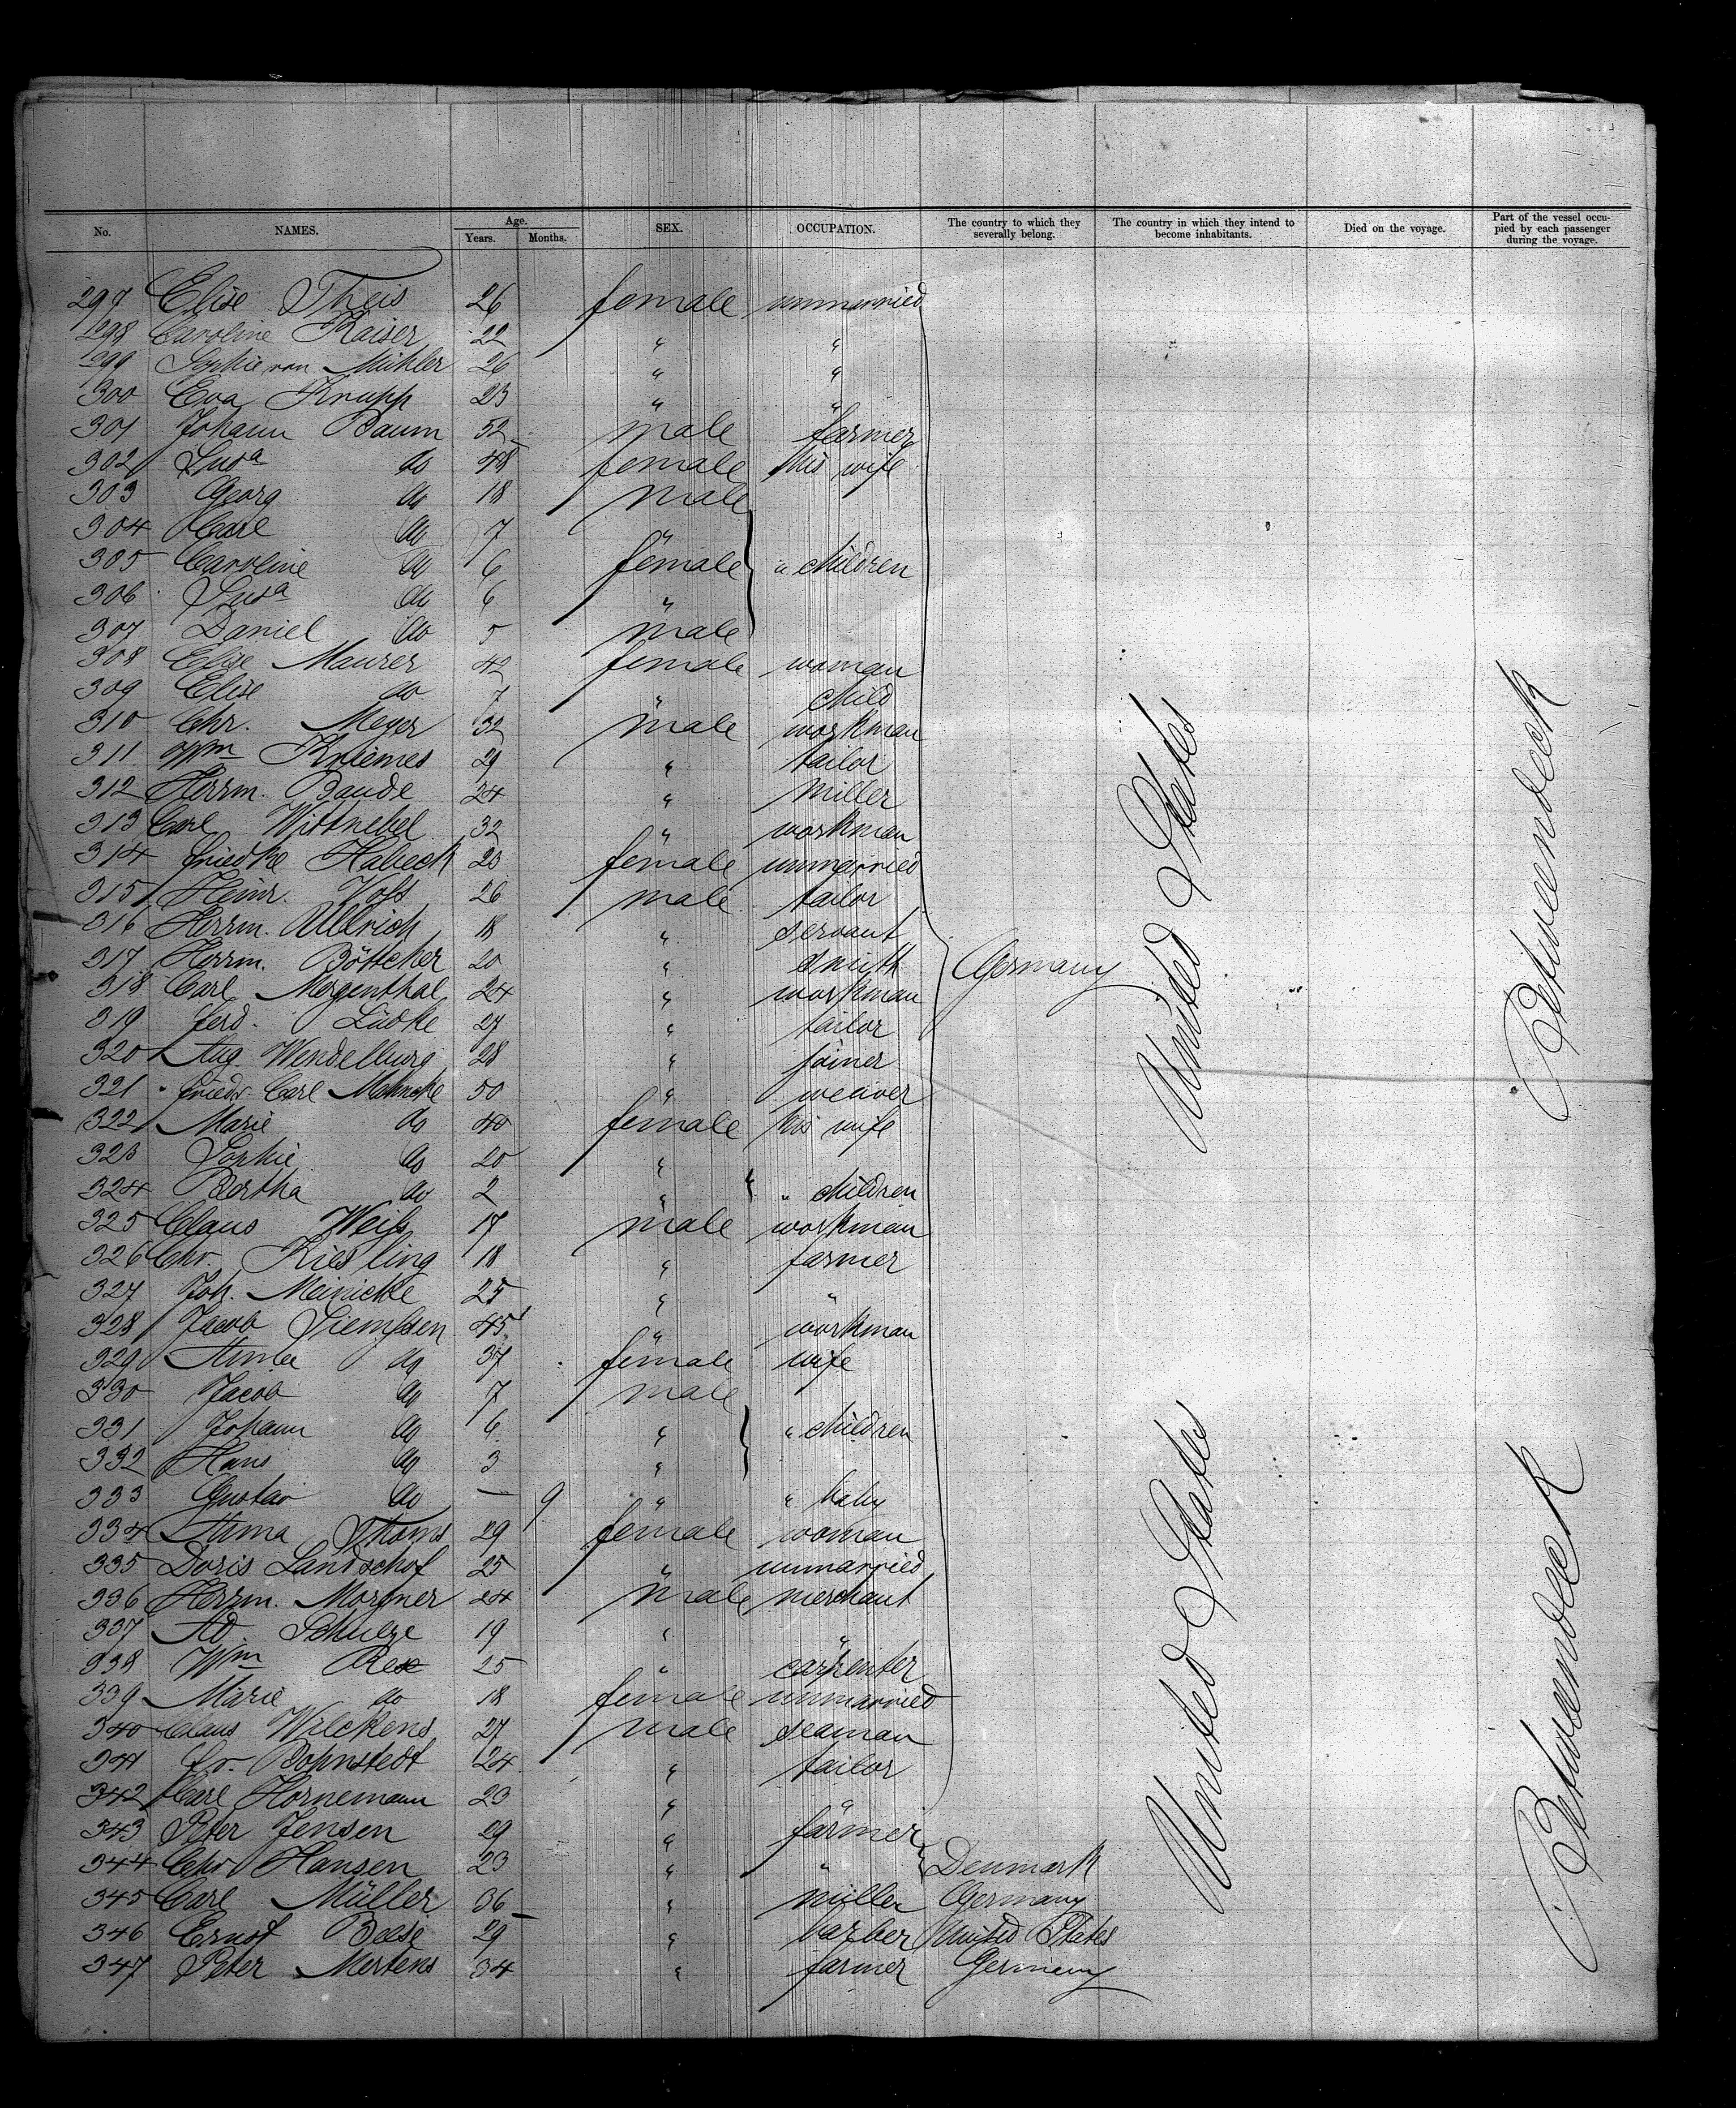 No. NAMES. Age. Years. Months. SEX. OCCUPATION. The country to which they severally belong. The country in which they intend to become inhabitants. Died on the voyage. Part of the vessel occupied by each passenger during the voyage.
297 Elise Theis 26 female unmarried
298 Caroline Kaiser 22 " "
299 Sophie von Mühler 26 " "
300 Eva Knupp 23 " "
301 Johann Baum 52 male farmer
302 Susa do 48 female his wife
303 Georg do 18 male
304 Carl do 7 "
305 Caroline do 6 female " children
306 Susa do 6 "
307 Daniel do 5 male
308 Elise Maurer 42 female woman
309 Elise do 7 " child
310 Chr. Meyer 32 male workman
311 Wm 29 " tailor
312 Herrm. Baude 24 " miller
313 Carl Wittnebel 32 " workman
314 Friedke Habeck 23 female unmarried
315 Heinr. Voss 26 male tailor
316 Herrm. Ullrich 18 " servant
317 Herrm. Böttcher 20 " smith Germany
318 Carl Morgenthal 24 " workman
319 Ferd. Lüdke 27 " tailor
320 Aug. Wendelburg 28 " joiner
321 Friedr. Carl 50 " weaver
322 Marie do 40 female his wife
323 Sophie do 20 "
324 Bertha do 2 " " children
325 Claus Weiss 17 male workman
326 Chr. Kiesling 18 " farmer
327 Joh. Meinicke 25 " "
328 Jacob Siemssen 45 " workman
329 do 37 female wife
330 Jacob do 7 male
331 Johann do 6 " " children
332 Hans do 3 "
333 Gustav do — 9 " " baby
334 Anna Thoms 29 female woman
335 Doris Landschof 25 " unmarried
336 Herrm. 24 male merchant
337 Ad. Schulze 19 " "
338 Wm Rex 25 " carpenter
339 Marie do 18 female unmarried
340 Claus Wilckens 27 male seaman
341 Bohnstedt 24 " tailor
342 Carl Hornemann 23 " "
343 Peter Jensen 29 " farmer
344 Chr Hansen 23 " " Denmark
345 Carl Müller 36 " miller Germany
346 Ernst Beese 29 " barber United States
347 Peter Mertens 34 " farmer Germany
United States
United States
Betweendeck
Betweendeck